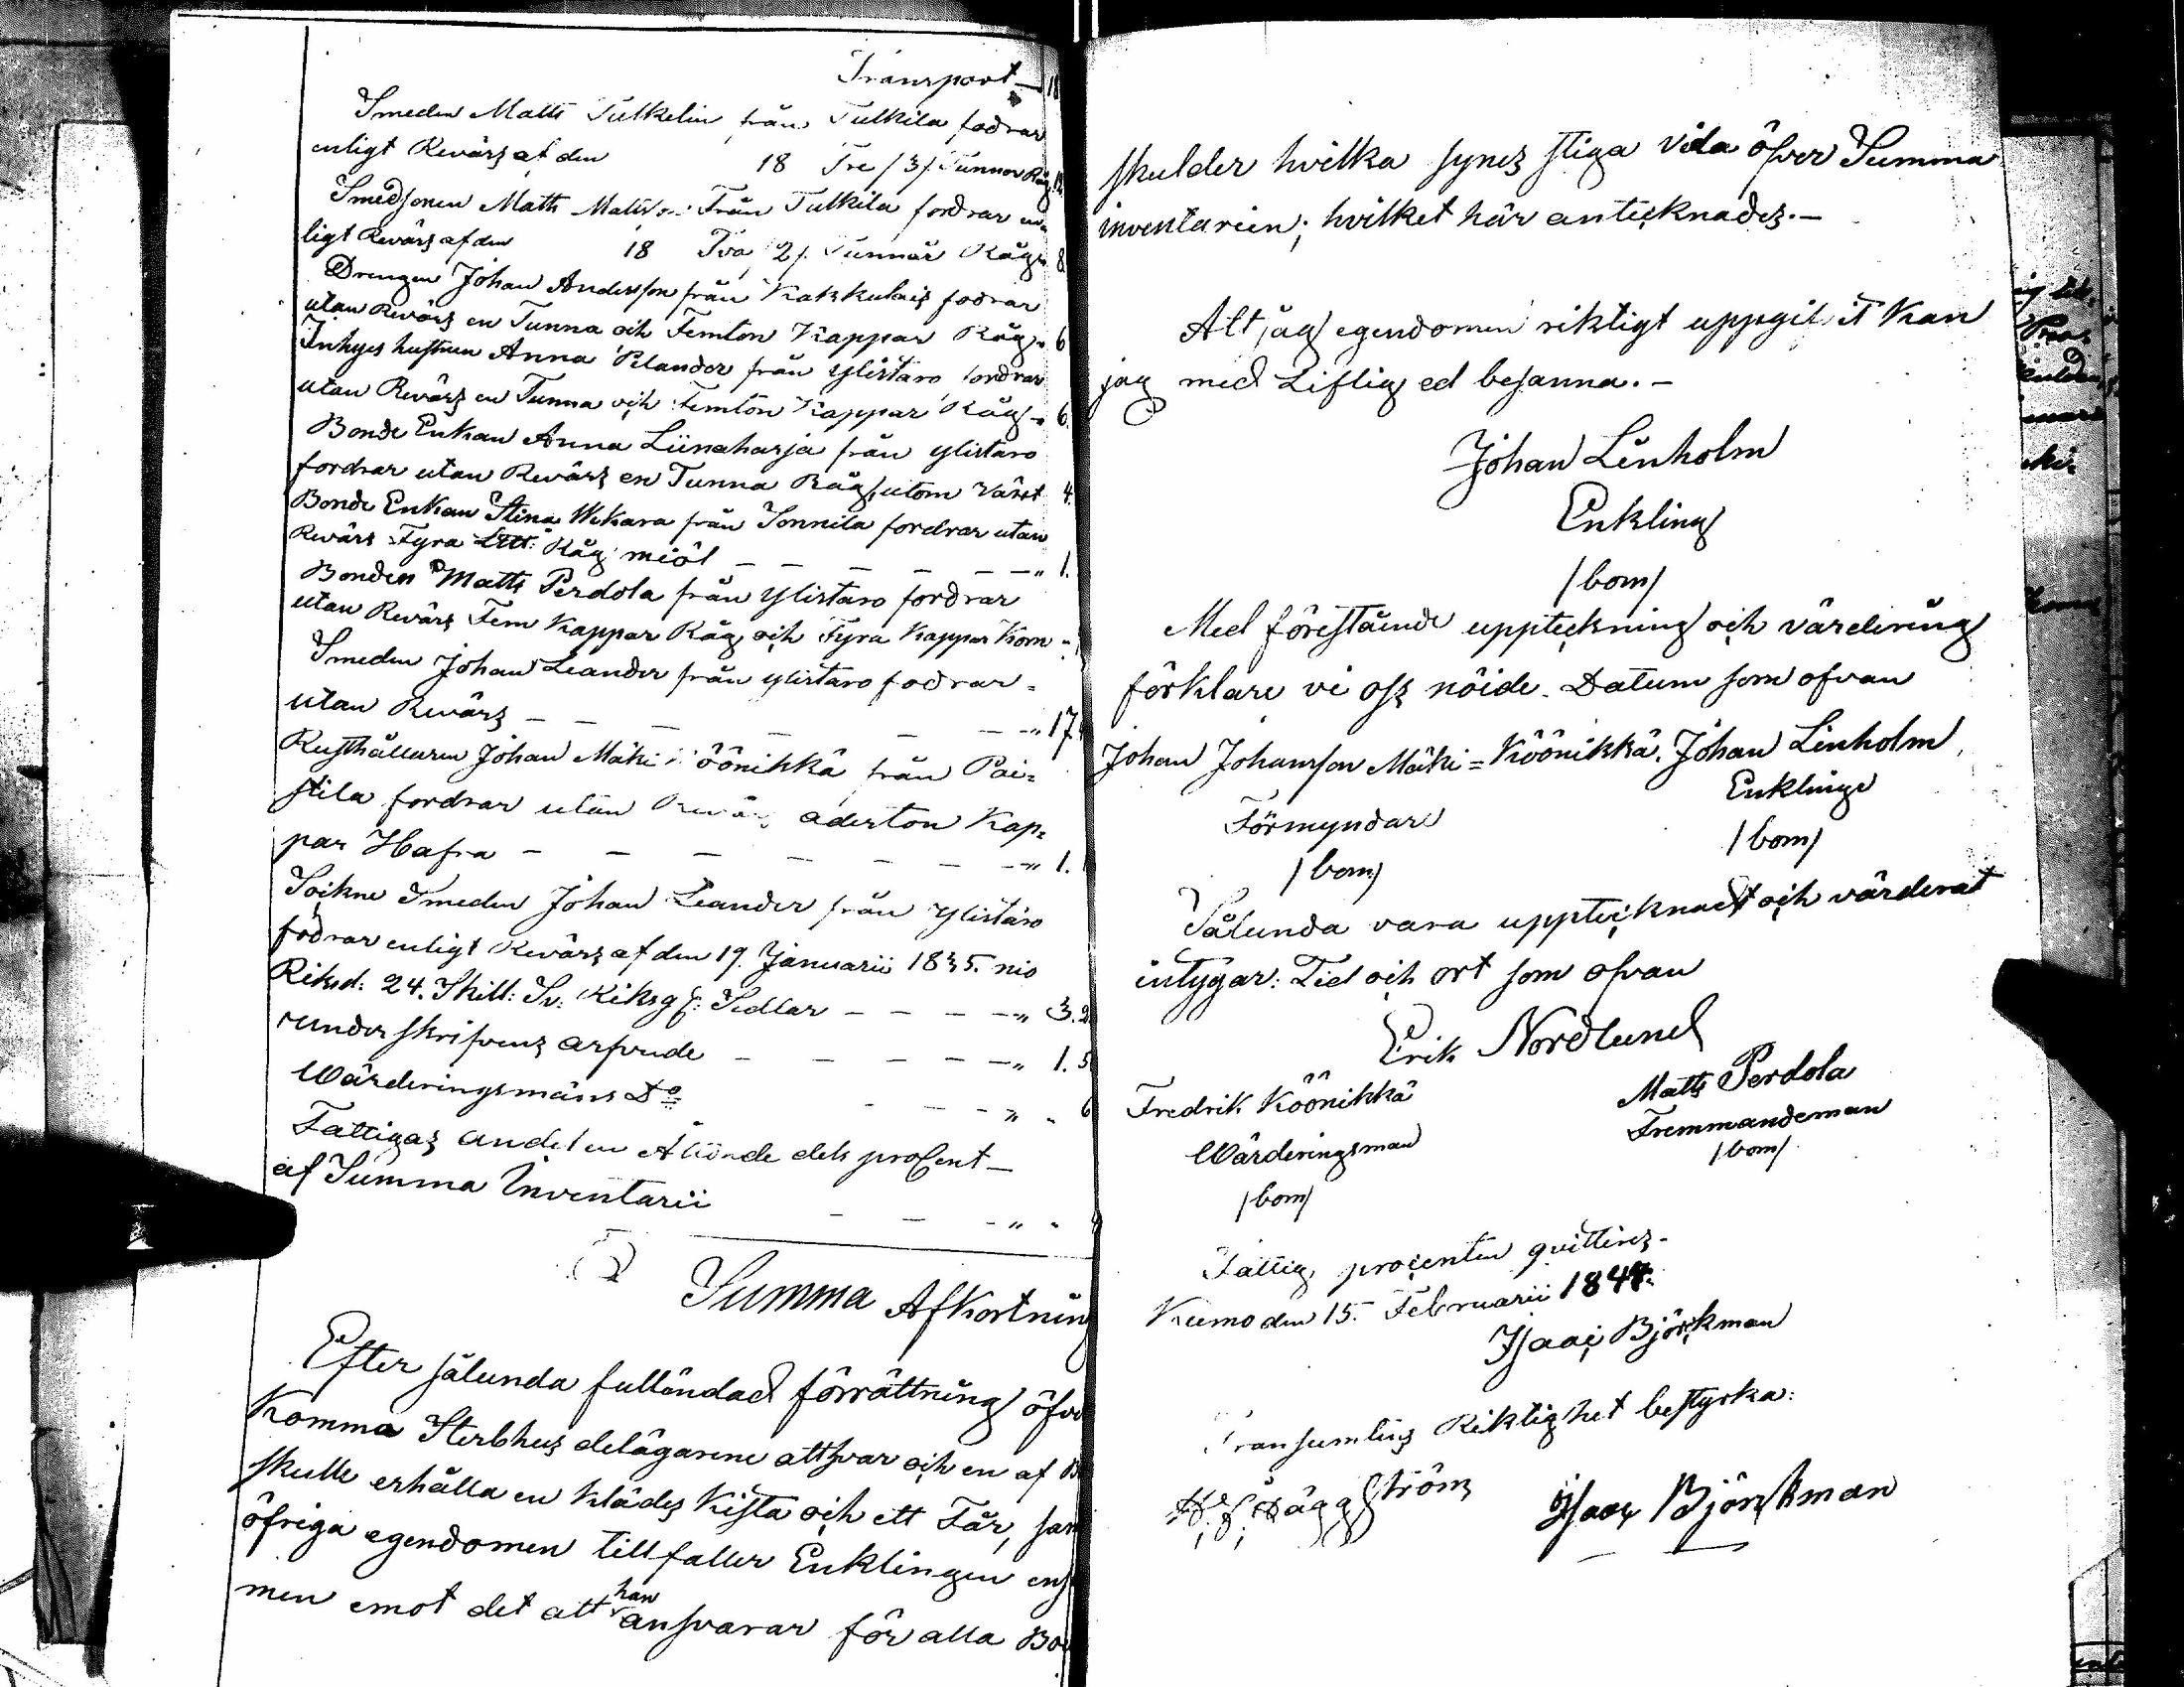 Transport — 18
Smeden Matts Tulkelin från Tulkila fodrar
enligt Revärs af den 18 Tre /3/ Tunnor Råg 12
Smedsonen Matts Matts: Från Tulkila fordrar en-
ligt Revärs af den 18 Två /2/ Tunnar Råg „ 8
Drengen Johan Andersson från Kakkulais fodrar
utan Revärs en Tunna och Femton Kappar Råg „ 6
Inhyses hustrun Anna Pelander från Ylistaro fordrar
utan Revärs en Tunna och Femton Kappar Råg „ 6.
Bonde Enkan Anna Liinaharja från Ylistaro
fordrar utan Revärs en Tunna Råg, utom växt 4.
Bonde Enkan Stina Wekara från Sonnila fordrar utan
Revärs Fyra Litt: Råg miöl — — — — — — „ 1.
Bonden Matts Perdola från Ylistaro fordrar
utan Revärs Fem Kappar Råg och Fyra Kappar Korn „
Smeden Johan Leander från Ylistaro fodrar
utan Revärs — — — — — „ 17.
Rusthållaren Johan Mäki Köönikkä från Pai=
stila fordrar utan Revärs aderton Kap=
par Hafra — — — — — — — „ 1.
Sockne Smeden Johan Leander från Ylistaro
fodrar enligt Revärs af den 19. Januarii 1835. nio
Riksd: 24. Skill: Sv: Riksg: Sedlar — — — — „ 3.2
underskrifvens arfvude — — — — — „ 1.5
Wärderingsmäns Do — — — „ „ 6
Fattigas andel en Åttonde dels proCent —
af Summa Inventarii — — — „ „
Summa Afkortning
Efter sålunda fulländad förrättning öfve
komma Sterbhus delägarene att hvar och en af B
skulle erhålla en Klädes Kista och ett Får, sam
öfriga egendomen tillfaller Enklingen ens
men emot det att han ansvarar för alla Bo
skulder hvilka synes stiga vida öfver Summa
inventarien; hvilket här antecknades.—
Att jag egendomen riktigt uppgifvit kan
jag med Liflig ed besanna.—
Johan Linholm
Enkling
/bom/
Med förestående uppteckning och värdering
förklare vi oss nöide. Datum som ofvan
Johan Johansson Mäki=Köönikkä. Johan Linholm
Förmyndare Enklinge
/bom/ /bom/
Sålunda vara upptecknadt och värderat
intygar: Tid och ort som ofvan
Erik Nordlund
Fredrik Köönikkä Matts Perdola
Wärderingsman Fremmandeman
/bom/ /bom/
Fattig procenten quitteres.
Kumo den 15. Februarii 1844.
Isaac Björkman
Transumtens Riktighet bestyrka:
Häggström Isaac Björkman